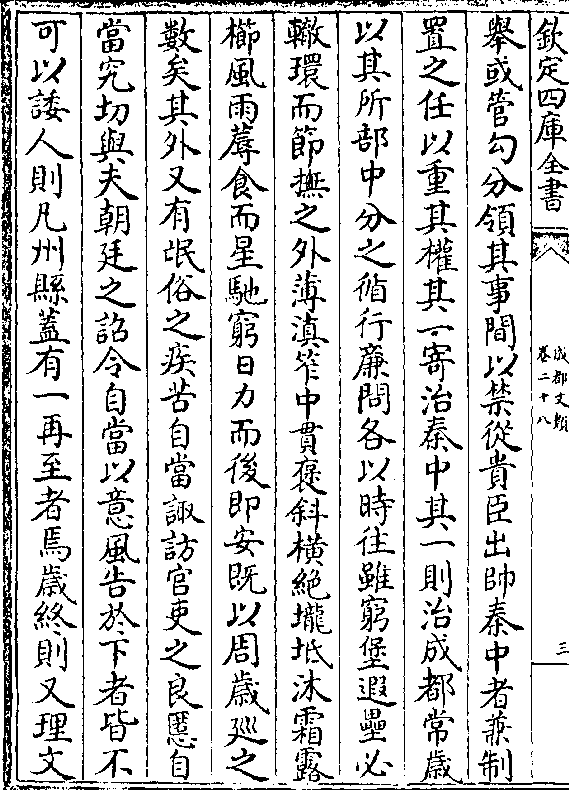 欽定四庫全書
成都文類
卷二十八
三
舉或管勾分領其事間以禁從貴臣出帥秦中者兼制
置之任以重其權其一寄治秦中其一則治成都常歳
以其所部中分之循行亷問各以時往雖窮堡遐壘必
轍環而節撫之外薄滇筰中貫褒斜横絶壠坻沐霜露
櫛風雨蓐食而星馳窮日力而後即安既以周歳廵之
數矣其外又有氓俗之疾苦自當諏訪官吏之良慝自
當究切與夫朝廷之詔令自當以意風告於下者皆不
可以諉人則凡州縣蓋有一再至者焉歳終則又理文